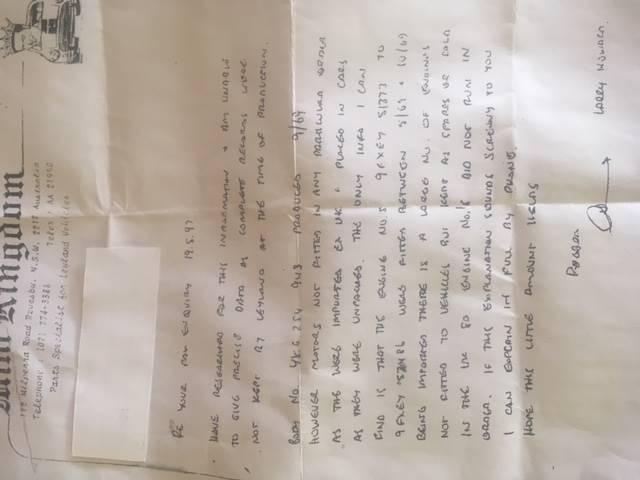 Mini Kingdom
Road Revesby. N.S.W. 2212 Australia
Telephone : (02) 774-3386 Telex : AA 21990
Parts Specialist for Leyland Vehicles
RE YOUR FAX ENQUIRY 19.5.97
HAVE RESEARCHED FOR THIS INFORMATION & AM UNABLE
TO GIVE PRECISE DATA AS COMPLETE RECORDS WERE
NOT KEPT BY LEYLAND AT THE TIME OF PRODUCTION.
BODY NO. YKG 254 943 PRODUCED 9/69
HOWEVER MOTORS NOT FITTED IN ANY PARTICULAR ORDER
AS THE WERE IMPORTED EX UK & PLACED IN CARS
AS THEY WERE UNPACKED. THE ONLY INFO I CAN
FIND IS THAT THE ENGINE NO.S 9FXEY 51377 TO
9FXEY WERE FITTED BETWEEN 5/69 & 10/69
BEING IMPORTED THERE IS A LARGE NO. OF ENGINES
NOT FITTED TO VEHICLES BUT KEPT AS SPARES OR SOLD
IN THE UK SO ENGINE NO.S DID NOT RUN IN
ORDER. IF THIS EXPLANATION SOUNDS SCREWY TO YOU
I CAN EXPLAIN IN FULL BY PHONE.
HOPE THIS LITTLE AMOUNT HELPS